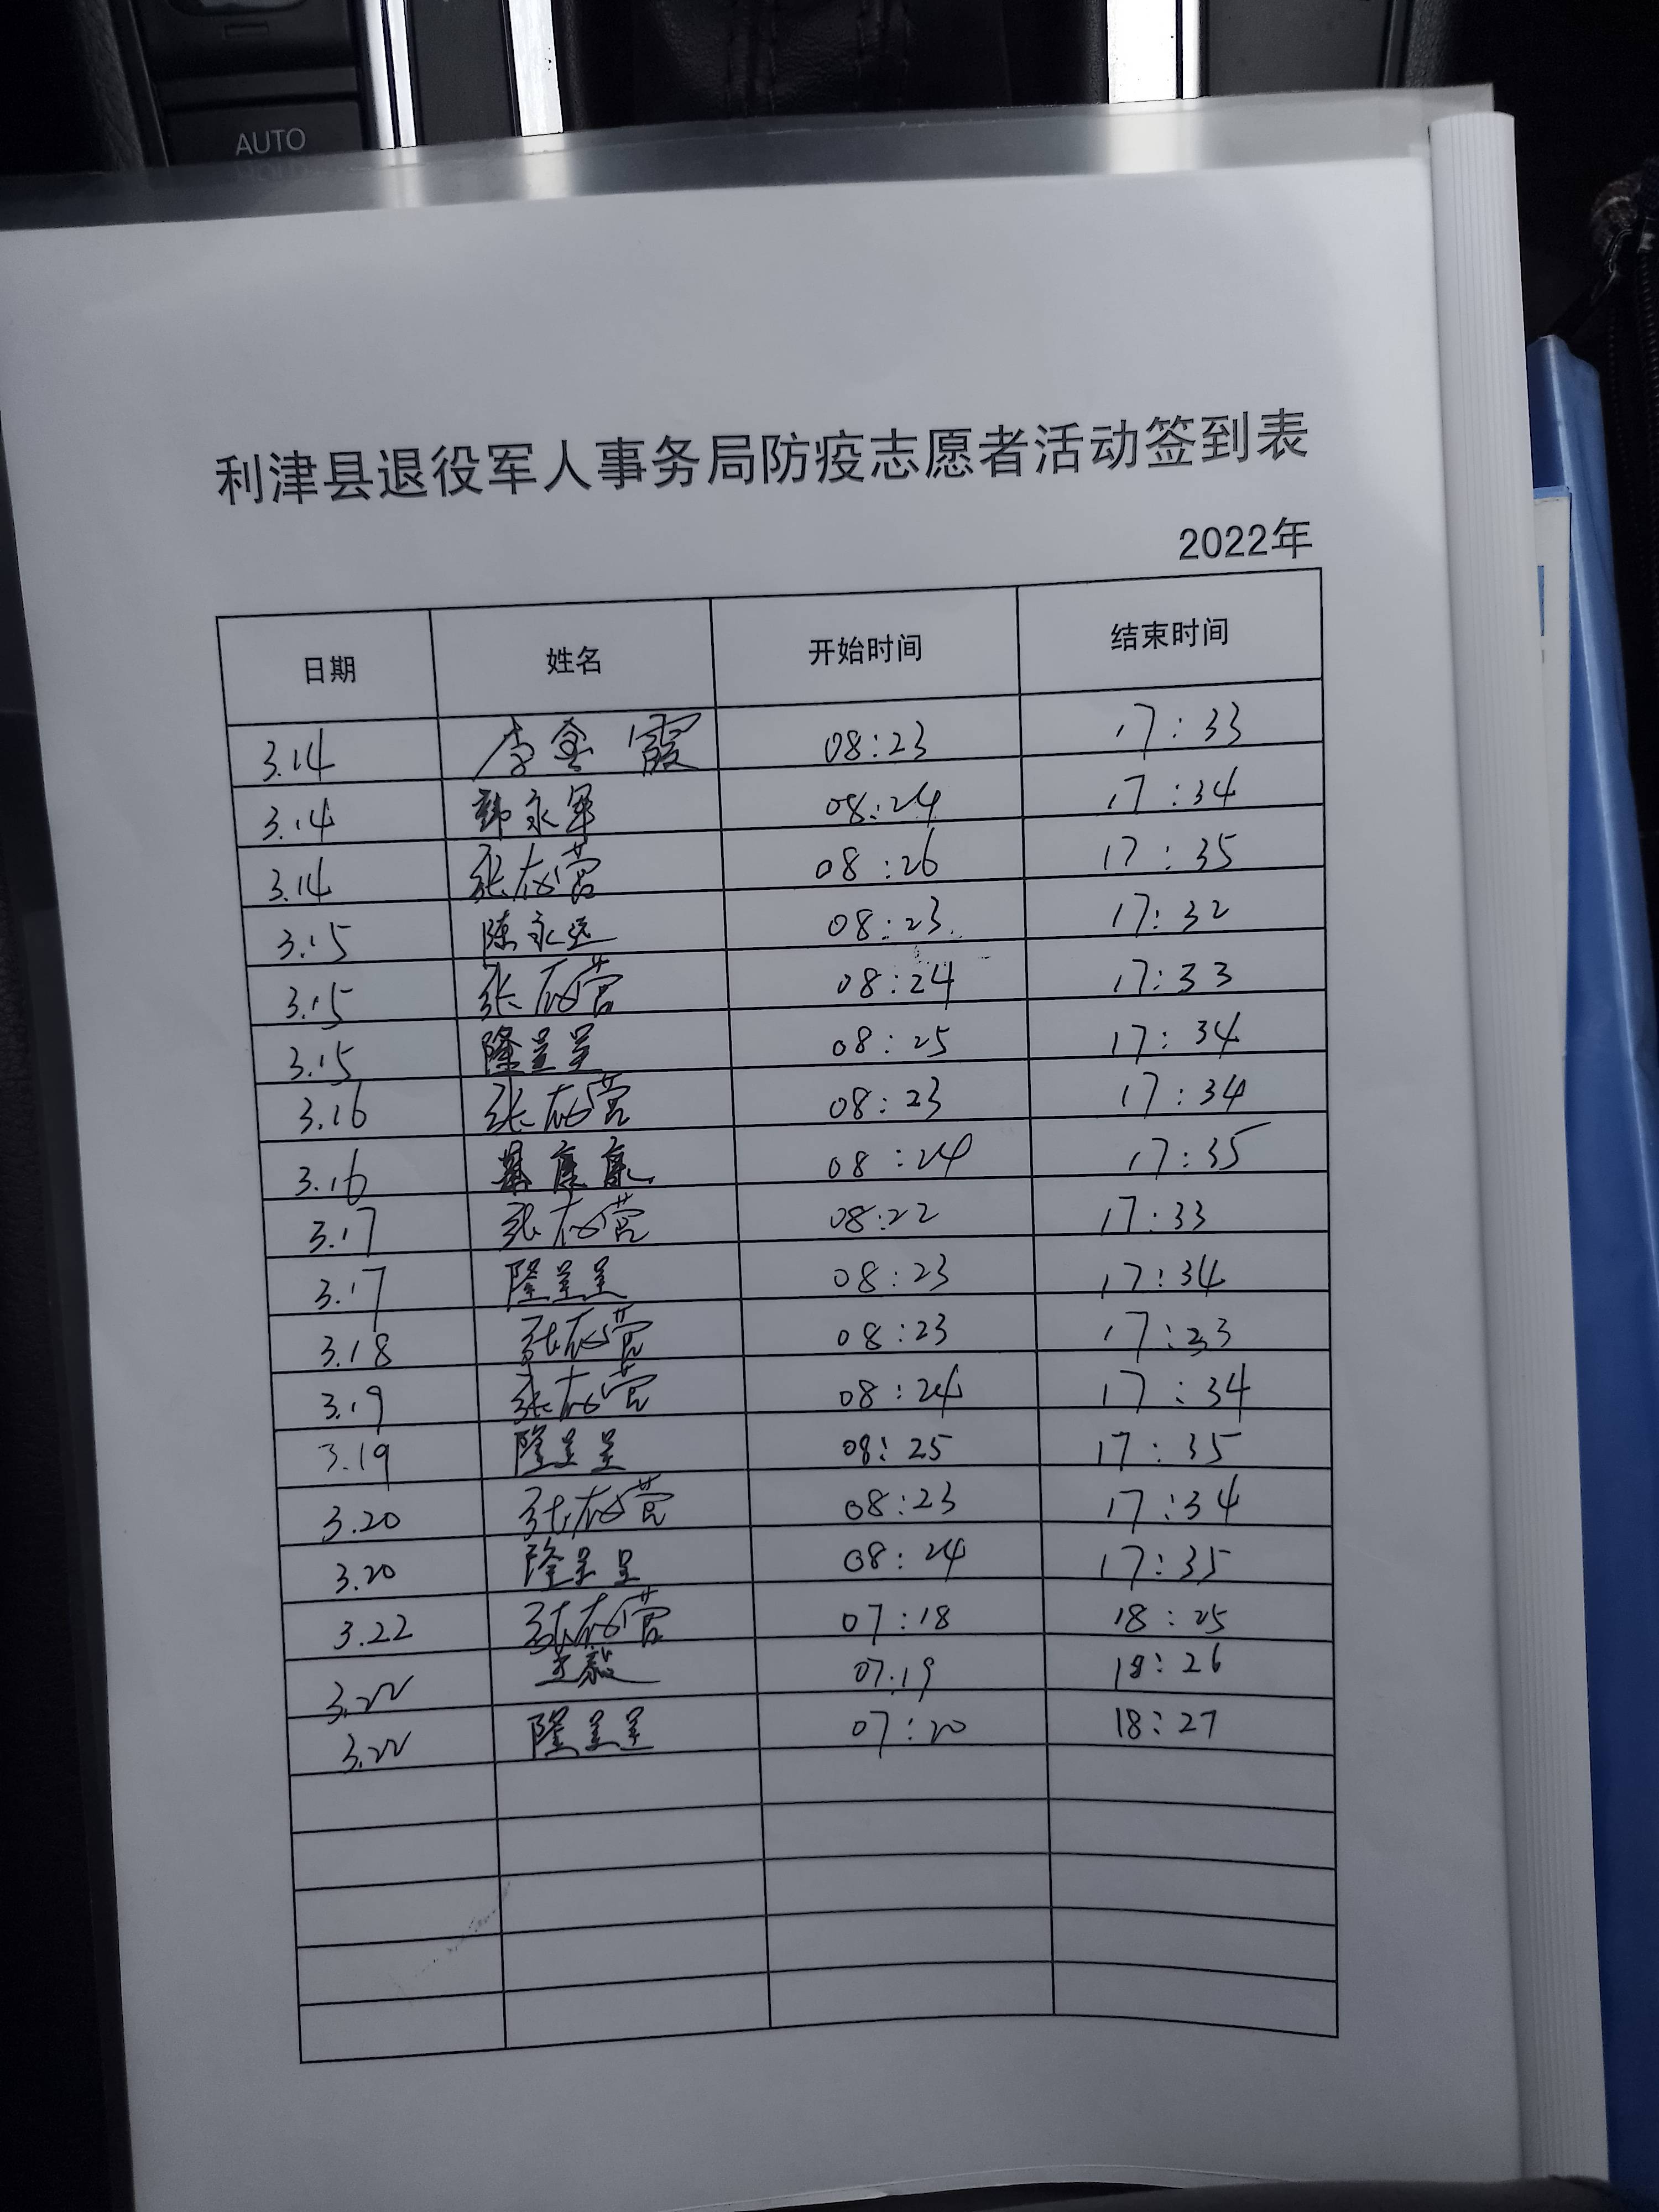 AUTO
HOLD
利津县退役军人事务局防疫志愿者活动签到表
2022年
日期 姓名 开始时间 结束时间
3.14 李金霞 08:23 17:33
3.14 韩永军 08:24 17:34
3.14 张在营 08:26 17:35
3.15 陈永远 08:23 17:32
3.15 张在营 08:24 17:33
3.15 隆呈呈 08:25 17:34
3.16 张在营 08:23 17:34
3.16 康康 08:24 17:35
3.17 张在营 08:22 17:33
3.17 隆呈呈 08:23 17:34
3.18 张在营 08:23 17:33
3.19 张在营 08:24 17:34
3.19 隆呈呈 08:25 17:35
3.20 张在营 08:23 17:34
3.20 隆呈呈 08:24 17:35
3.22 张在营 07:18 18:25
3.22 王毅 07:19 18:26
3.22 隆呈呈 07:20 18:27